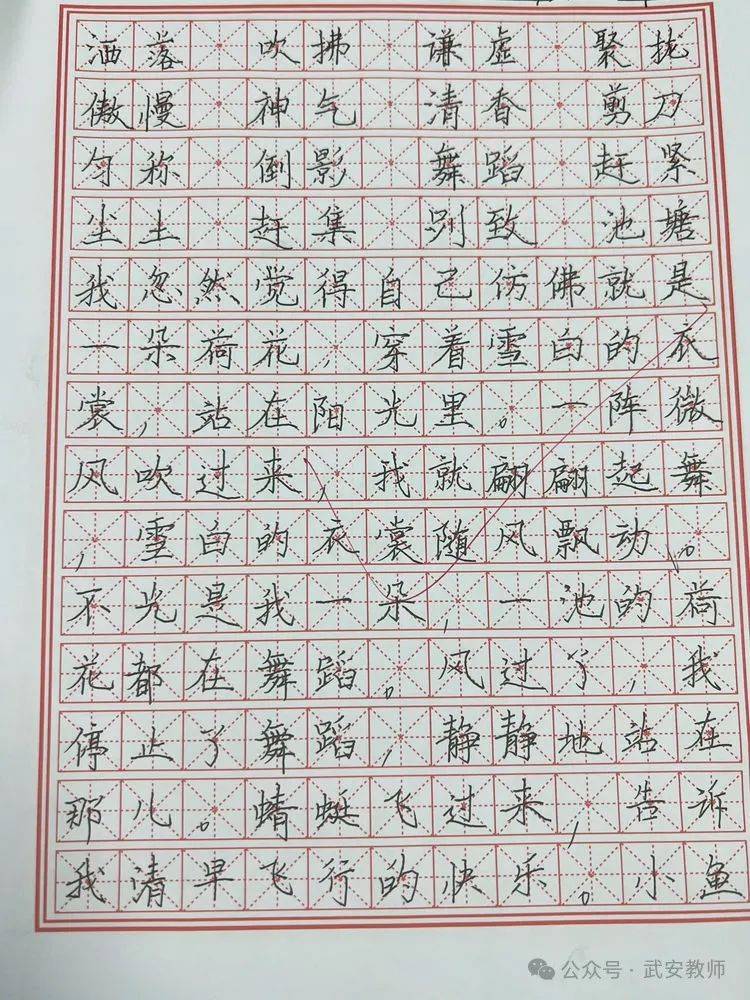 洒落 吹拂 谦虚 聚拢
傲慢 神气 清香 剪刀
匀称 倒影 舞蹈 赶紧
尘土 赶集 别致 池塘
我忽然觉得自己仿佛就是
一朵荷花，穿着雪白的衣
裳，站在阳光里。一阵微
风吹过来，我就翩翩起舞
，雪白的衣裳随风飘动。
不光是我一朵，一池的荷
花都在舞蹈。风过了，我
停止了舞蹈，静静地站在
那儿。蜻蜓飞过来，告诉
我清早飞行的快乐。小鱼
公众号·武安教师